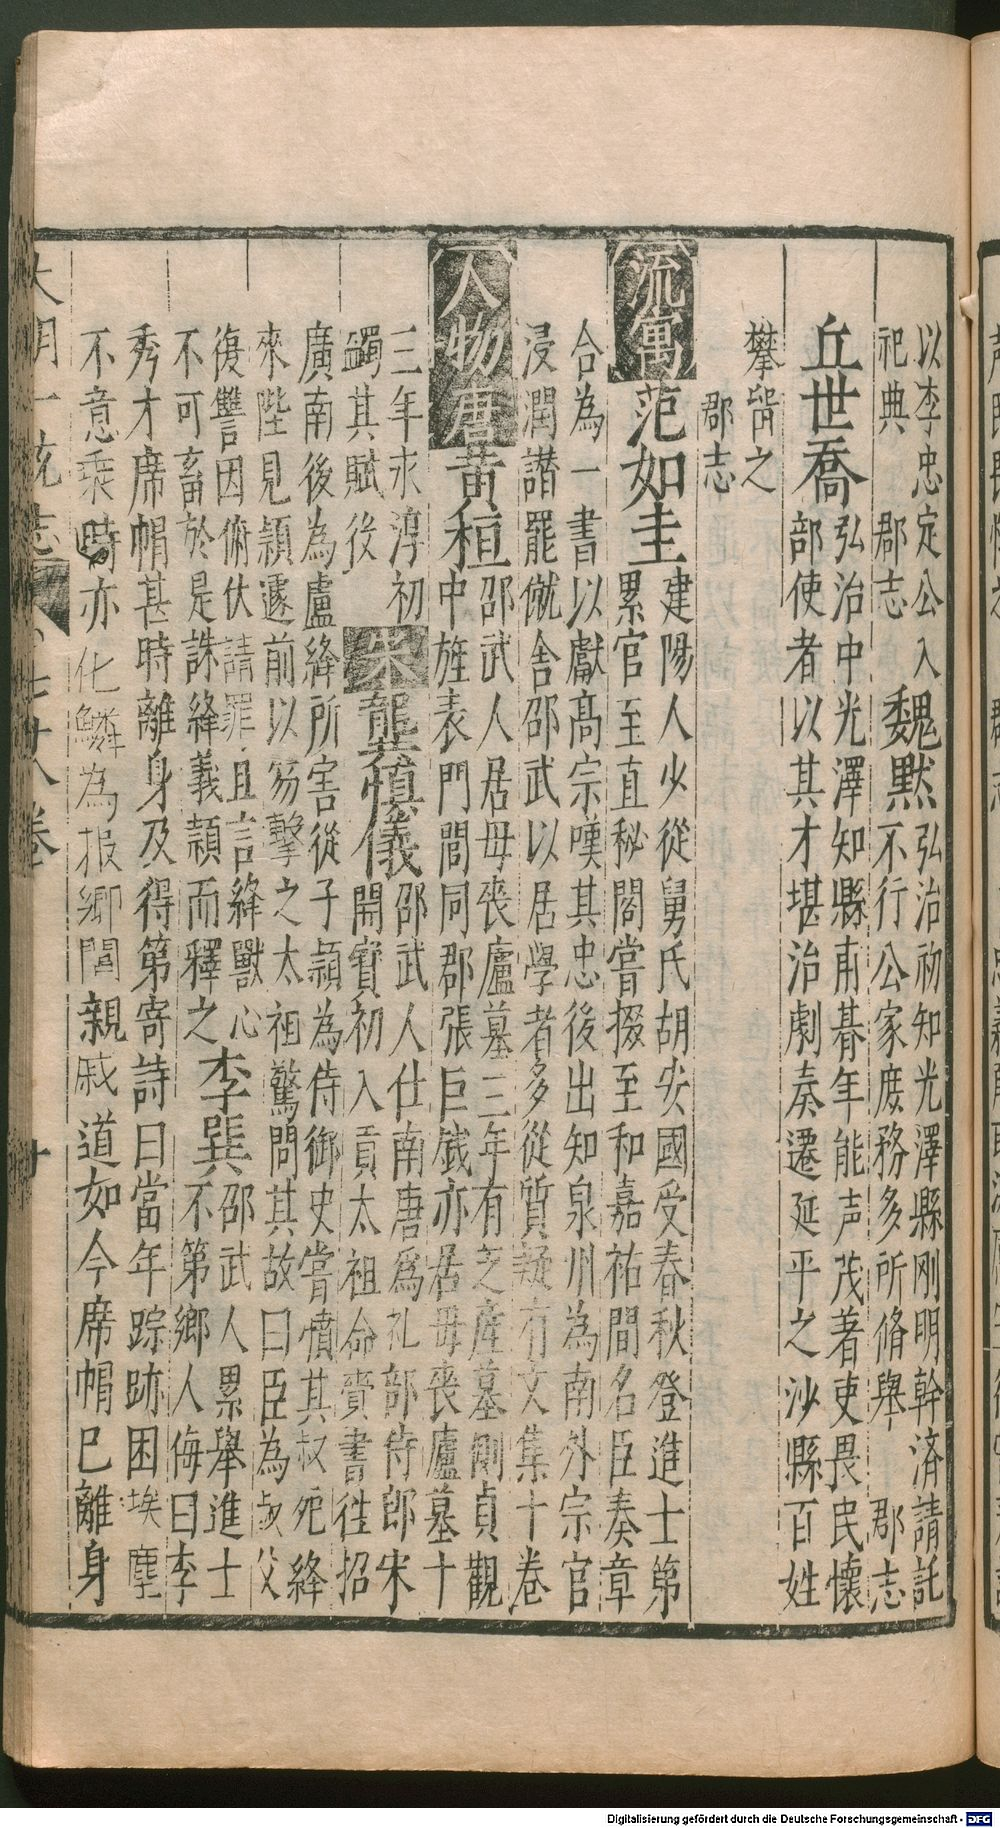 以李忠定公入
祀典　郡志
魏黙
弘治初知光澤縣剛明幹済請託
不行公家庶務多所脩舉　郡志
丘世喬
弘治中光澤知縣甫朞年能声茂著吏畏民懷
部使者以其才堪治劇奏遷延平之沙縣百姓
攀留之
郡志
流寓
范如圭
建陽人少從舅氏胡安國受春秋登進士第
累官至直秘閣嘗掇至和嘉祐間名臣奏章
合為一書以獻髙宗嘆其忠後出知泉州為南外宗官
浸潤譖罷僦舎邵武以居學者多從質疑有文集十卷
人物
唐
黃桓
邵武人居母丧廬墓三年有芝產墓側貞觀
中旌表門閭同郡張巨戲亦居母丧廬墓十
三年求淳初
蠲其賦役
宋
龔慎儀
邵武人仕南唐爲礼部侍郎宋
開寳初入貢太祖命賫書徃招
廣南後為盧絳所害從子頴為侍御史嘗憤其叔死絳
來陛見頴遽前以笏擊之太祖驚問其故曰臣為叔父
復讐因俯伏請罪且言絳獸心
不可畜於是誅絳義頴而釋之
李巽
邵武人累舉進士
不第鄉人侮曰李
秀才席帽甚時離身及得第寄詩曰當年踪跡困埃塵
不意乘時亦化鱗為报鄉閭親戚道如今席帽已離身
大明一統志　七十八卷　十
Digitalisierung gefördert durch die Deutsche Forschungsgemeinschaft - DFG